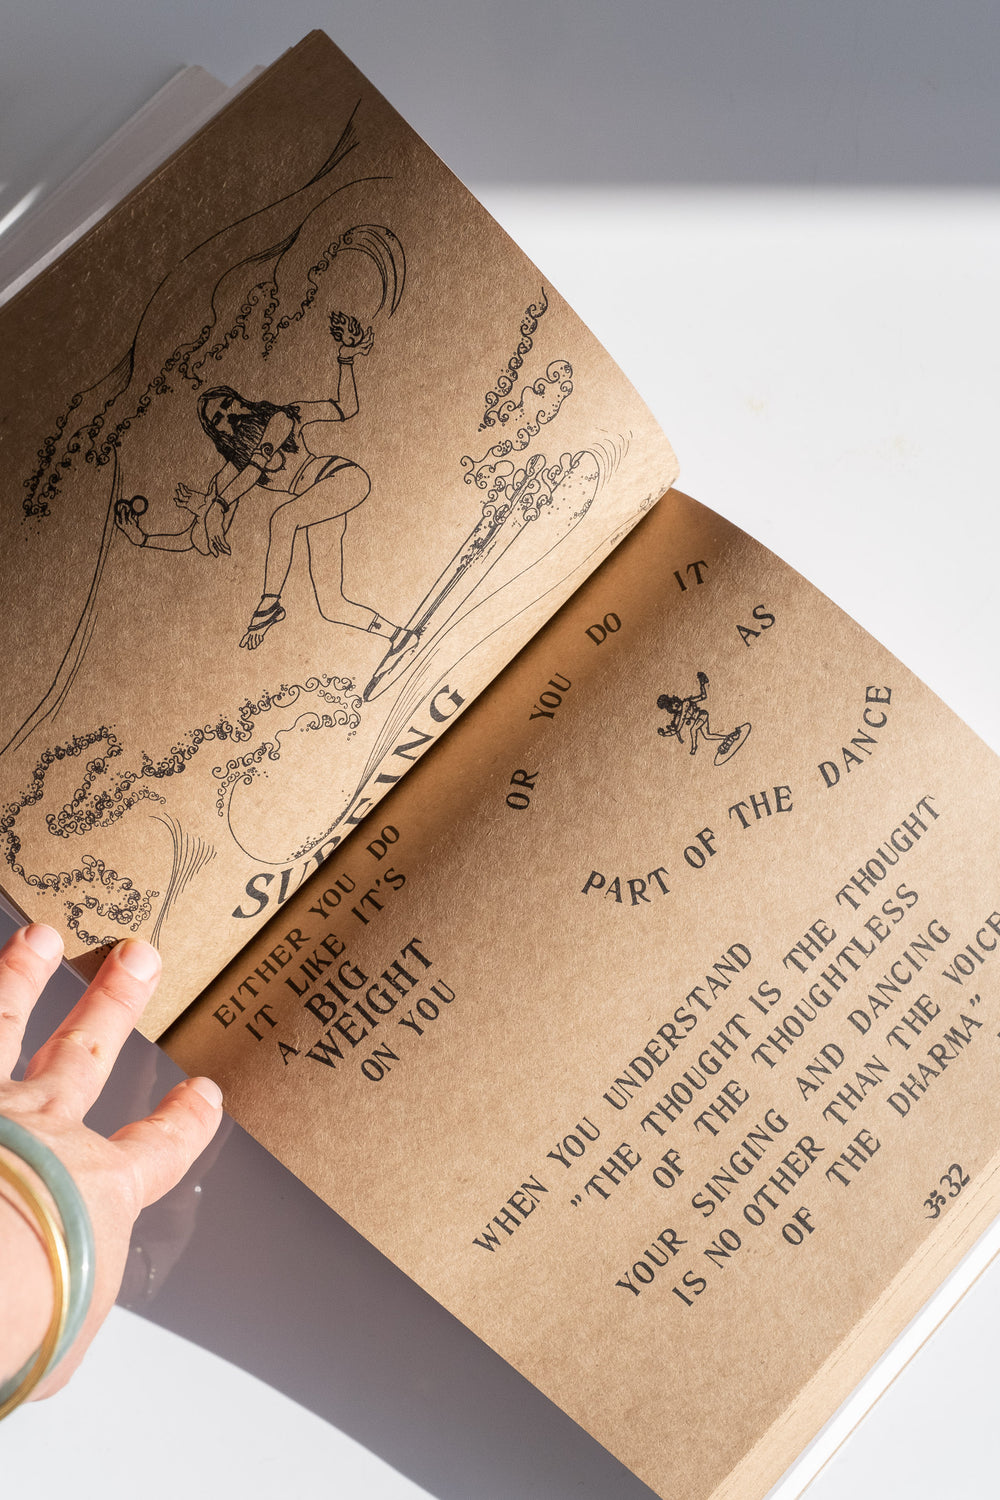 SURFING
EITHER YOU DO
IT LIKE IT'S
A BIG
WEIGHT
ON YOU
OR YOU DO IT
AS
PART OF THE DANCE
WHEN YOU UNDERSTAND
"THE THOUGHT IS THE THOUGHT
OF THE THOUGHTLESS
YOUR SINGING AND DANCING
IS NO OTHER THAN THE VOICE
OF THE DHARMA"
ॐ 32